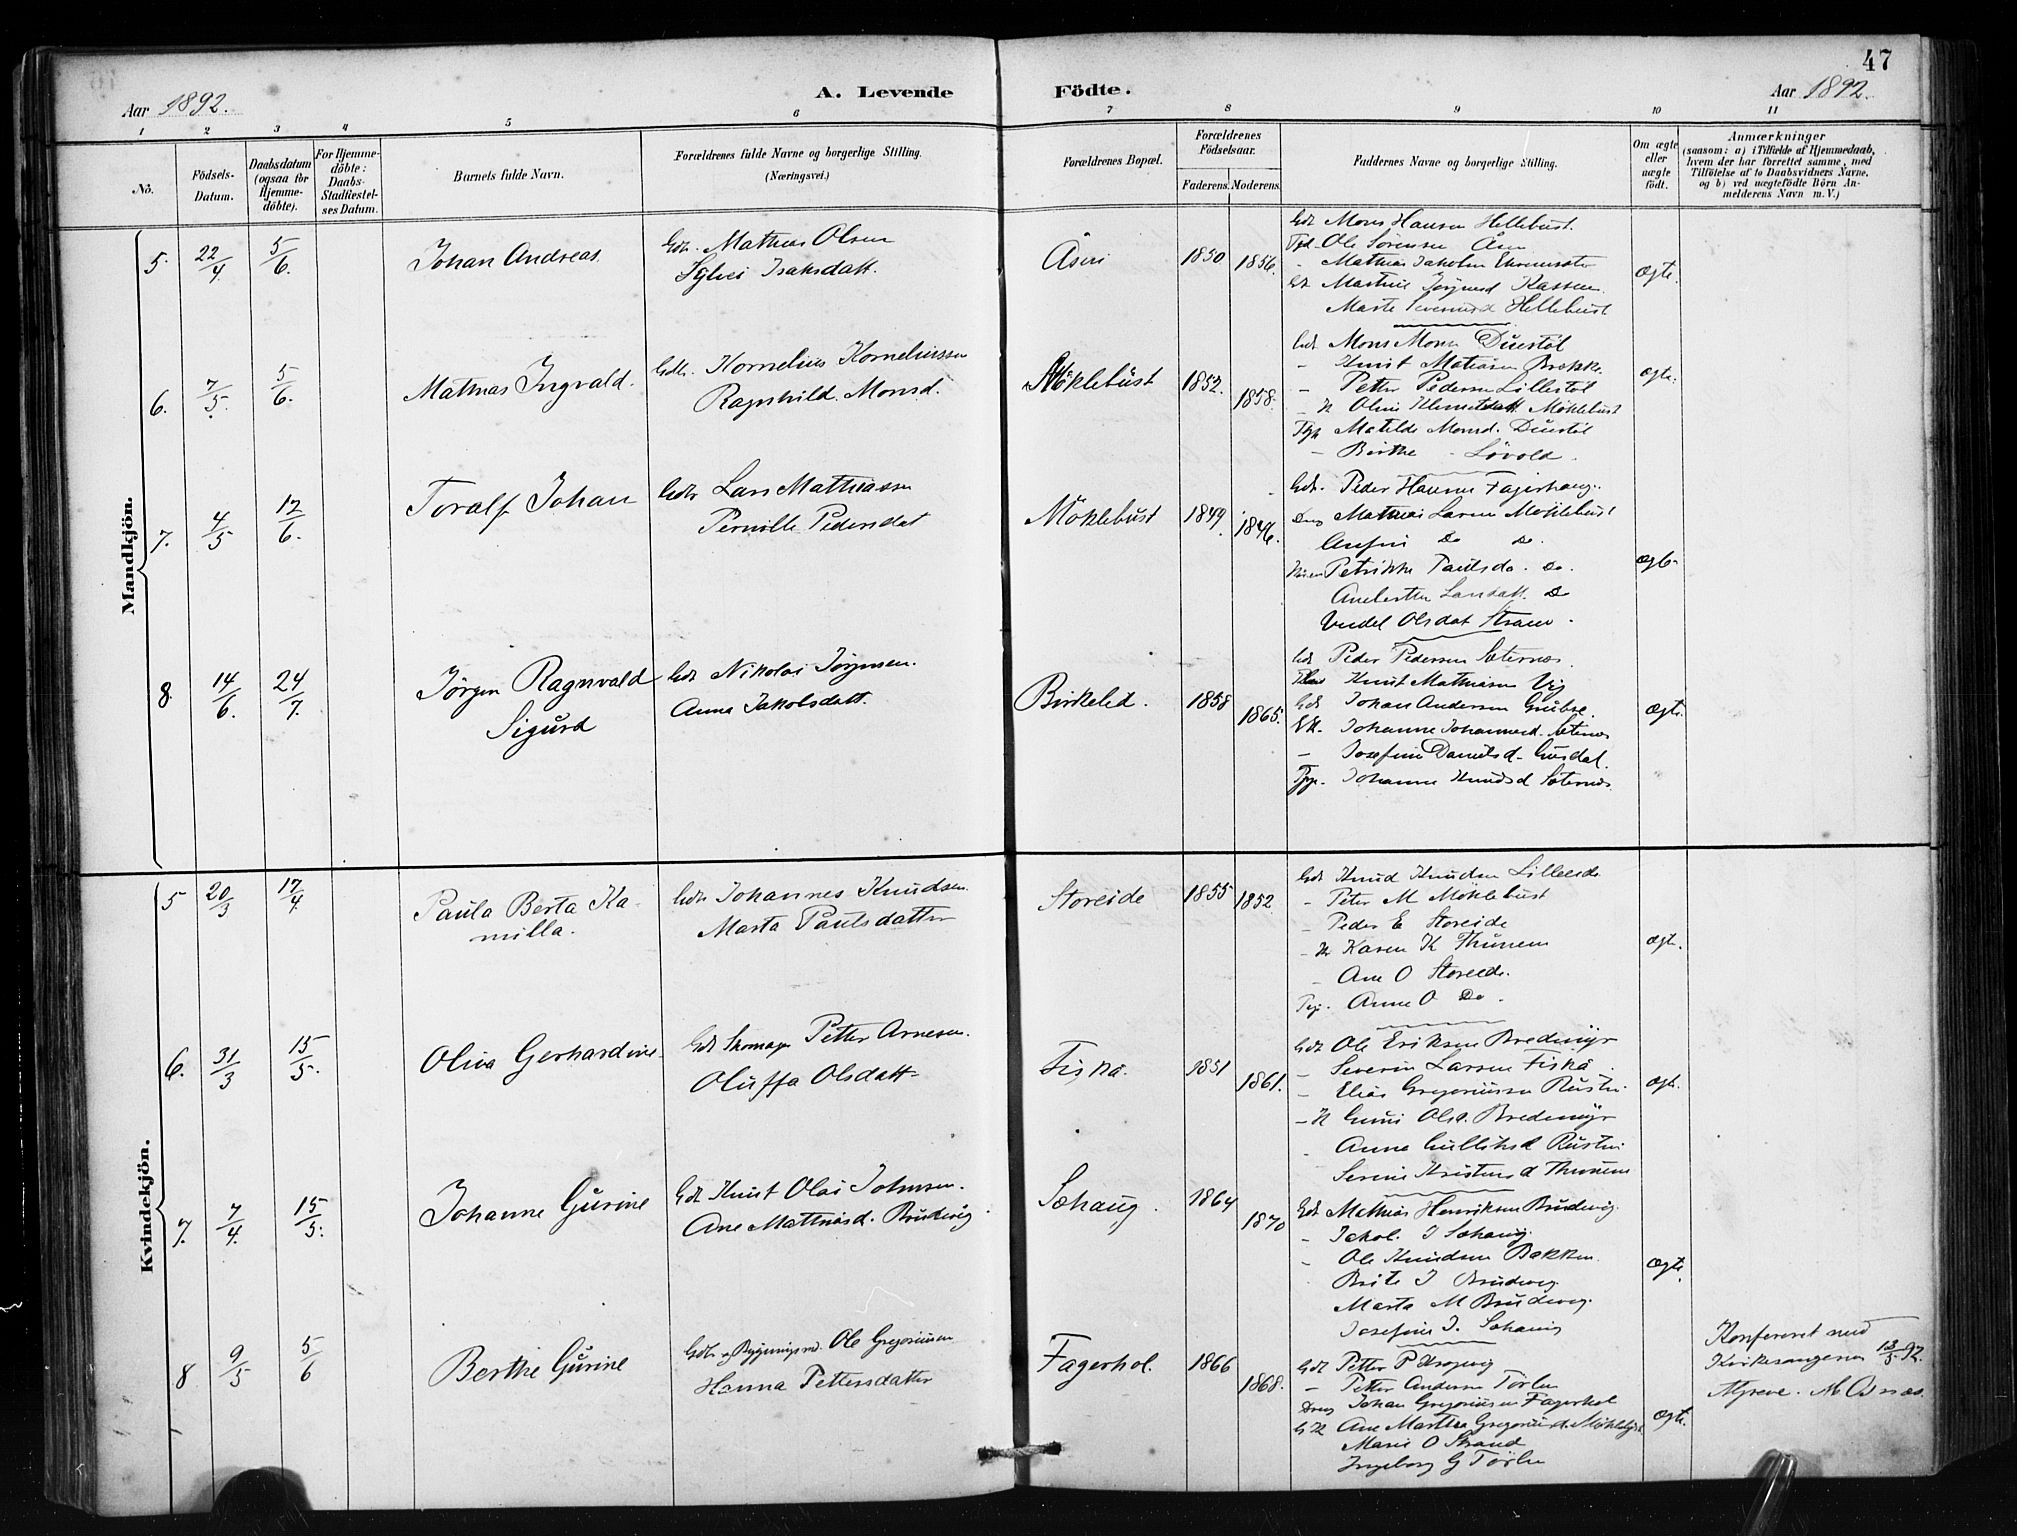 47
Aar 1892. A. Levende Födte. Aar 1892.
1 2 3 4 5 6 7 8 9 10 11
No.
Födsels-
Datum.
Daabsdatum
(ogsaa for
Hjemme-
döbte).
For Hjemme-
döbte:
Daabs-
Stadfæstel-
ses Datum.
Barnets fulde Navn.
Forældrenes fulde Navne og borgerlige Stilling.
(Næringsvei.)
Forældrenes Bopæl.
Forældrenes
Födselsaar.
Faderens. Moderens.
Faddernes Navne og borgerlige Stilling.
Om ægte
eller
uægte
födt.
Anmærkninger
(saasom: a) i Tilfælde af Hjemmedaab,
hvem der har forrettet samme, med
Tilföielse af to Daabsvidners Navne,
og b) ved uægtefödte Börn An-
melderens Navn m. V.)
Mandkjön.
5. 22/4 5/6. Johan Andreas
Gdr. Mathias Olsen
Sylvei Isaksdatt.
Åsen 1850 1856.
Gdr Mons Hansen Hellebust.
Ole Sörensen Åsen
- Mathias Jakobsen
Martine Jörgensd Kassen
Marte Severinsd Hellebust
ægte.
6. 7/5. 5/6. Mathias Ingvald.
Gdbr. Kornelius Korneliussen
Ragnhild Monsd.
Möklebust 1852. 1858.
Gdr. Mons Monsen Duestöl
- Knut Matiasen Brekke
- Petter Pedersen Lillestöl
- K Oline Klemetsdatt Möklebust
Matilde Monsd. Duestöl
- Birthe - Lövold.
ægte.
7. 4/5 12/6. Toralf Johan
Gdbr Lars Mathiassen
Pernille Pedersdat
Möklebust 1849. 1846.
Gdr. Peder Hansen Fagerhaug.
Dreng Mathias Larsen Möklebust
Do Do.
Petrikke Paulsd. Do.
Larsdatt. Do
Olsdat Strand.
ægte.
8. 14/6. 24/7. Jörgen Ragnvald
Sigurd
Gdr Nikolai Jörgensen.
Anna Jakobsdatt.
Birkelid. 1858 1865.
Gdr Peder Pedersen Sæternes.
Knut Mathiasen Vig
Gdr Johan Andersen Grubse.
Johanne Johannesd. Sæternes
- Josefine Danielsd. Gusdal.
Johanne Knudsd Sæternes
ægte.
Kvindekjön.
5 20/3 17/4. Paula Berta Ka-
milla.
Gdr Johannes Knudsen.
Marta Paulsdatter
Storeide 1855 1852
Gdr Knud Knudsen Lilleeide
- Peter M Möklebust
- Peder E Storeide
- K Karen K Thunem
- Ane O Storeide.
Anne O Do.
ægte.
6. 31/3 15/5. Oliva Gerhardine.
Gdr Skomager Petter Arnesen.
Oluffa Olsdatt-
Fiskå. 1851 1861.
Gdr Ole Eriksen Bredemyr
- Severin Larsen Fiskå.
- Elias Gregoriussen Rusten.
- K Guni Olsd. Bredemyr
- Anne Gulliksd Rusten.
Serine Kristensd Thunem
ægte.
7. 7/4. 15/5. Johanne Gurine
Gdr Knut Olai Johnsen.
Ane Mathiasd. Brudevig
Sæhaug. 1864 1870
Gdr Mathias Henriksen Brudevig.
- Jakob J Sæhaug.
- Ole Knudsen Bakken.
Brite J Brudevig.
Marta M Brudevig.
Josefine J. Sæhaug
ægte.
8 9/5 5/6 Berthe Gurine
Gdbr og Bygningsm. Ole Gregoriussen
Hanna Pettersdatter
Fagerhol. 1866 1868.
Gdr Petter P Krogvig
- Petter Andersen Törlen
Dreng Johan Gregoriussen Fagerhol
G K Ane Martha Gregoriusd. Möklebust
Marie O Strand
Ingeborg G Törlen
ægte.
Konfereret med
Kirkesangeren 13/5 92.
Myreve. M Osnæs.